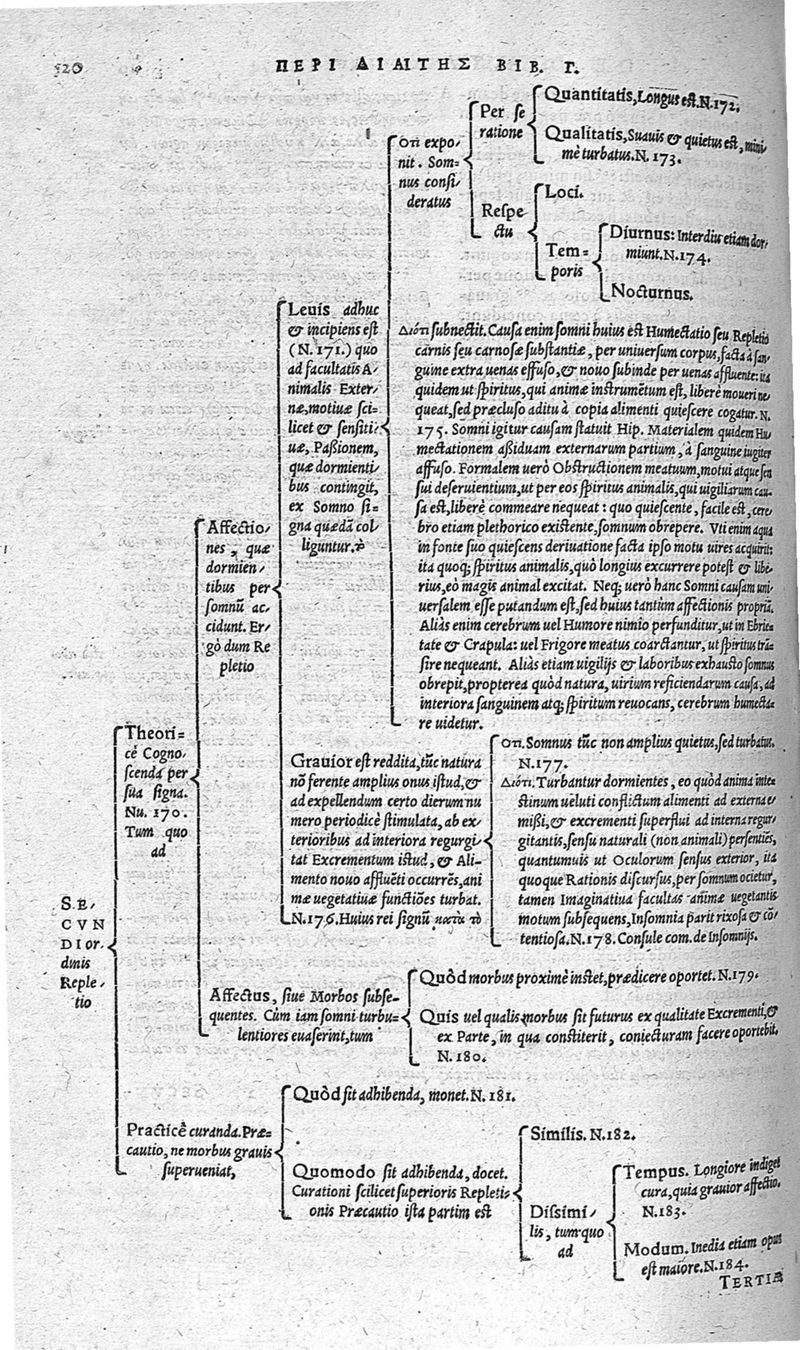 120
ΠΕΡΙ ΔΙΑΙΤΗΣ ΒΙΒ. Γ.
SE-
CVN
DI or-
dinis
Reple-
tio
Theori-
cè Cogno-
scenda per
sua signa.
Nu. 170.
Tum quo
ad
Affectio-
nes, quæ
dormien-
tibus per
somnũ ac-
cidunt. Er-
gò dum Re
pletio
Leuis adhuc
& incipiens est
(N. 171.) quo
ad facultatis A-
nimalis Exter-
næ, motiuæ sci-
licet & sensiti-
uæ, Paßionem,
quæ dormienti-
bus contingit,
ex Somno si-
gna quædã col
liguntur. τὸ
Ὅτι expo-
nit. Som-
nus consi-
deratus
Per se
ratione
Quantitatis, Longus est. N. 172.
Qualitatis, Suauis & quietus est, mini-
mè turbatus. N. 173.
Respe-
ctu
Loci.
Tem-
poris
Diurnus: Interdiu etiam dor-
miunt. N. 174.
Nocturnus.
Διότι subnectit. Causa enim somni huius est Humectatio seu Repletio
carnis seu carnosæ substantiæ, per uniuersum corpus, facta à san-
guine extra uenas effuso, & nouo subinde per uenas affluente: ita
quidem ut spiritus, qui animæ instrumẽtum est, liberè moueri ne-
queat, sed præcluso aditu à copia alimenti quiescere cogatur. N.
175. Somni igitur causam statuit Hip. Materialem quidem Hu-
mectationem aßiduam externarum partium, à sanguine iugiter
affuso. Formalem uerò Obstructionem meatuum, motui atque sen
sui deseruientium, ut per eos spiritus animalis, qui uigiliarum cau-
sa est, liberè commeare nequeat: quo quiescente, facile est, cere-
bro etiam plethorico existente, somnum obrepere. Vti enim aqua
in fonte suo quiescens deriuatione facta ipso motu uires acquirit:
ita quoq; spiritus animalis, quò longius excurrere potest & libe-
rius, eò magis animal excitat. Neq; uerò hanc Somni causam uni-
uersalem esse putandum est, sed huius tantùm affectionis propriã.
Aliàs enim cerebrum uel Humore nimio perfunditur, ut in Ebrie-
tate & Crapula: uel Frigore meatus coarctantur, ut spiritus trã-
sire nequeant. Aliàs etiam uigilijs & laboribus exhausto somnus
obrepit, propterea quòd natura, uirium reficiendarum causa, ad
interiora sanguinem atq; spiritum reuocans, cerebrum humecta-
re uidetur.
Grauior est reddita, tũc natura
nõ ferente amplius onus istud, &
ad expellendum certo dierum nu
mero periodicè stimulata, ab ex-
terioribus ad interiora regurgi-
tat Excrementum istud, & Ali-
mento nouo affluẽti occurrẽs, ani
mæ uegetatiuæ functiões turbat.
N. 176. Huius rei signũ κατὰ τὸ
Ὅτι. Somnus tũc non amplius quietus, sed turbatus.
N. 177.
Διότι. Turbantur dormientes, eo quòd anima inte-
stinum ueluti conflictum alimenti ad externa e-
mißi, & excrementi superflui ad interna regur-
gitantis, sensu naturali (non animali) persentiẽs,
quantumuis ut Oculorum sensus exterior, ita
quoque Rationis discursus, per somnum ocietur,
tamen Imaginatiua facultas animæ uegetantis
motum subsequens, Insomnia parit rixosa & cõ-
tentiosa. N. 178. Consule com. de Insomnijs.
Affectus, siue Morbos subse-
quentes. Cùm iam somni turbu-
lentiores euaserint, tum
Quòd morbus proximè instet, prædicere oportet. N. 179.
Quis uel qualis morbus sit futurus ex qualitate Excrementi, &
ex Parte, in qua constiterit, coniecturam facere oportebit.
N. 180.
Practicè curanda. Præ-
cautio, ne morbus grauis
superueniat,
Quòd sit adhibenda, monet. N. 181.
Quomodo sit adhibenda, docet.
Curationi scilicet superioris Repleti-
onis Præcautio ista partim est
Similis. N. 182.
Dissimi-
lis, tum quo
ad
Tempus. Longiore indiget
cura, quia grauior affectio.
N. 183.
Modum. Inedia etiam opus
est maiore. N. 184.
TERTIÆ